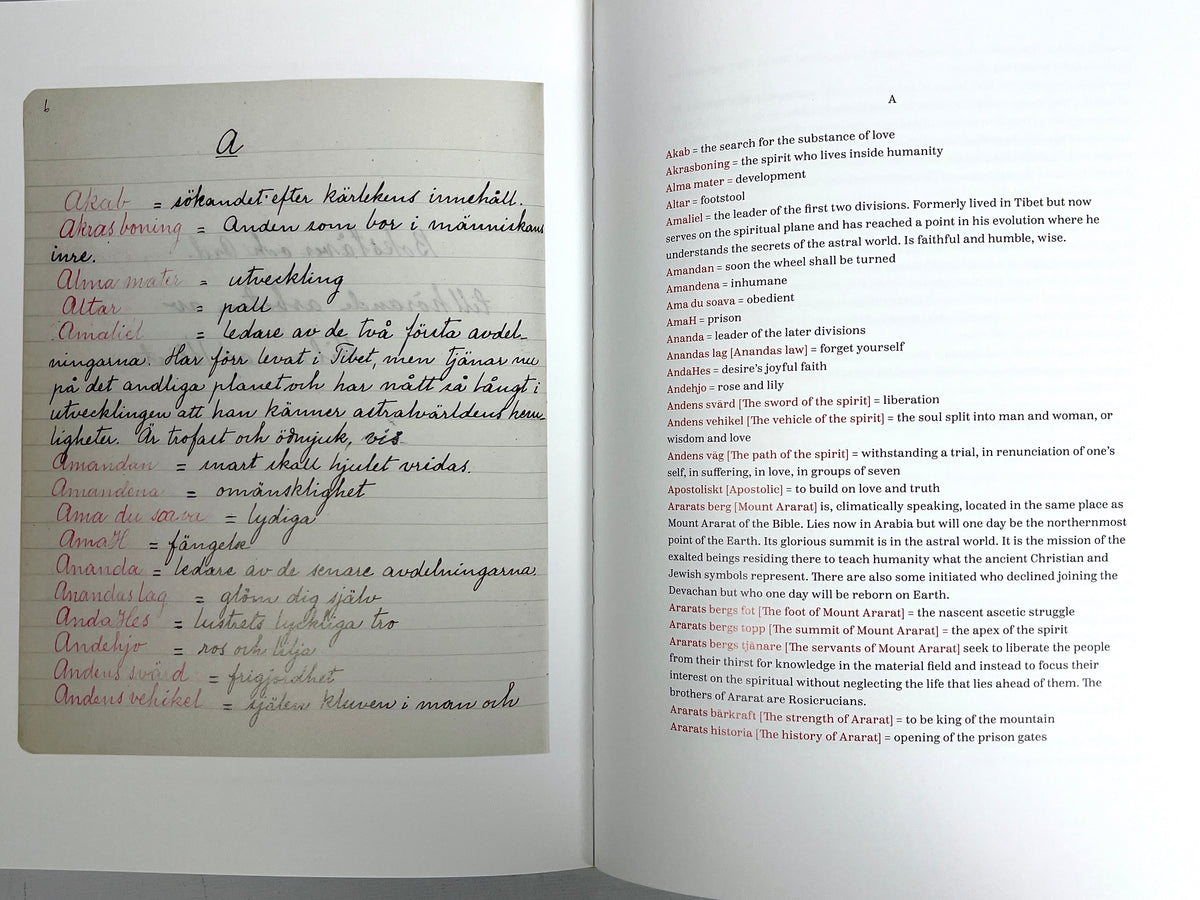 6
A
Akab = sökandet efter kärlekens innehåll.
Akrasboning = Anden som bor i människans
inre.
Alma mater = utveckling
Altar = pall
Amaliel = ledare av de två första avdel-
ningarna. Har förr levat i Tibet, men tjänar nu
på det andliga planet och har nått så långt i
utvecklingen att han känner astralvärldens hem-
ligheter. Är trofast och ödmjuk, vis
Amandan = snart skall hjulet vridas.
Amandena = omänsklighet
Ama du soava = lydiga
AmaH = fängelse
Ananda = ledare av de senare avdelningarna
Anandas lag = glöm dig själv
AndaHes = lustrets lyckliga tro
Andehjo = ros och lilja
Andens svärd = frigjordhet
Andens vehikel = själen kluven i man och
A
Akab = the search for the substance of love
Akrasboning = the spirit who lives inside humanity
Alma mater = development
Altar = footstool
Amaliel = the leader of the first two divisions. Formerly lived in Tibet but now
serves on the spiritual plane and has reached a point in his evolution where he
understands the secrets of the astral world. Is faithful and humble, wise.
Amandan = soon the wheel shall be turned
Amandena = inhumane
Ama du soava = obedient
AmaH = prison
Ananda = leader of the later divisions
Anandas lag [Anandas law] = forget yourself
AndaHes = desire's joyful faith
Andehjo = rose and lily
Andens svärd [The sword of the spirit] = liberation
Andens vehikel [The vehicle of the spirit] = the soul split into man and woman, or
wisdom and love
Andens väg [The path of the spirit] = withstanding a trial, in renunciation of one's
self, in suffering, in love, in groups of seven
Apostoliskt [Apostolic] = to build on love and truth
Ararats berg [Mount Ararat] is, climatically speaking, located in the same place as
Mount Ararat of the Bible. Lies now in Arabia but will one day be the northernmost
point of the Earth. Its glorious summit is in the astral world. It is the mission of the
exalted beings residing there to teach humanity what the ancient Christian and
Jewish symbols represent. There are also some initiated who declined joining the
Devachan but who one day will be reborn on Earth.
Ararats bergs fot [The foot of Mount Ararat] = the nascent ascetic struggle
Ararats bergs topp [The summit of Mount Ararat] = the apex of the spirit
Ararats bergs tjänare [The servants of Mount Ararat] seek to liberate the people
from their thirst for knowledge in the material field and instead to focus their
interest on the spiritual without neglecting the life that lies ahead of them. The
brothers of Ararat are Rosicrucians.
Ararats bärkraft [The strength of Ararat] = to be king of the mountain
Ararats historia [The history of Ararat] = opening of the prison gates